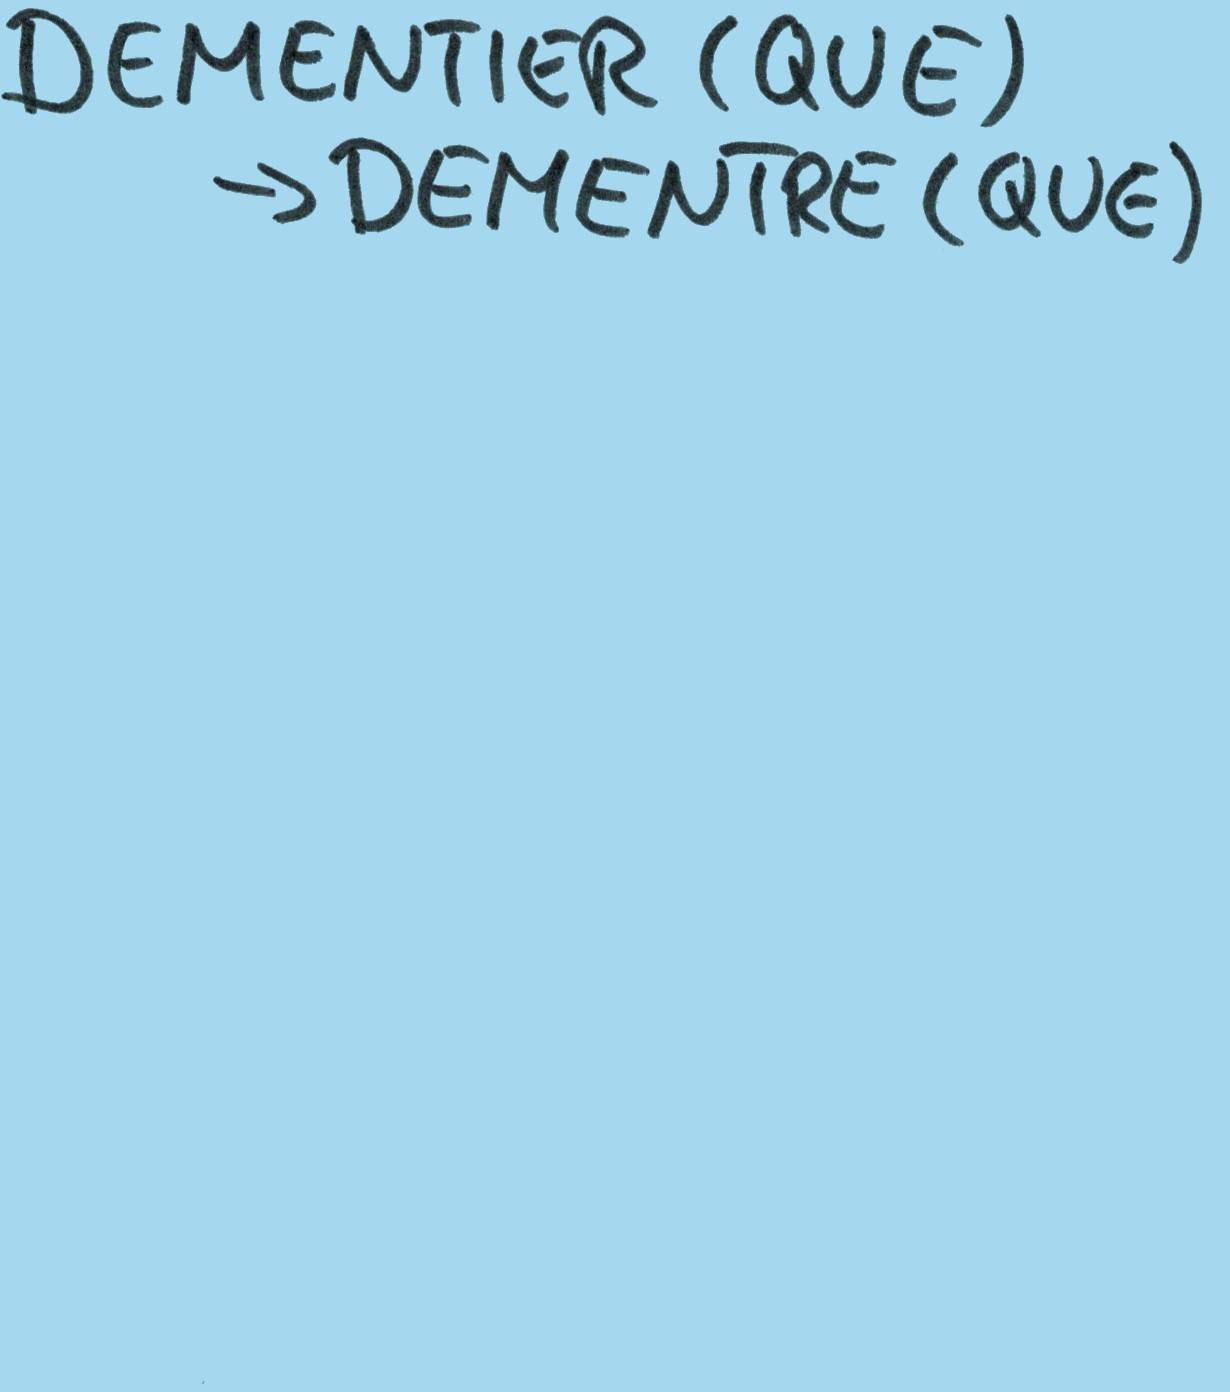 DEMENTIER (QUE)
→ DEMENTRE (QUE)